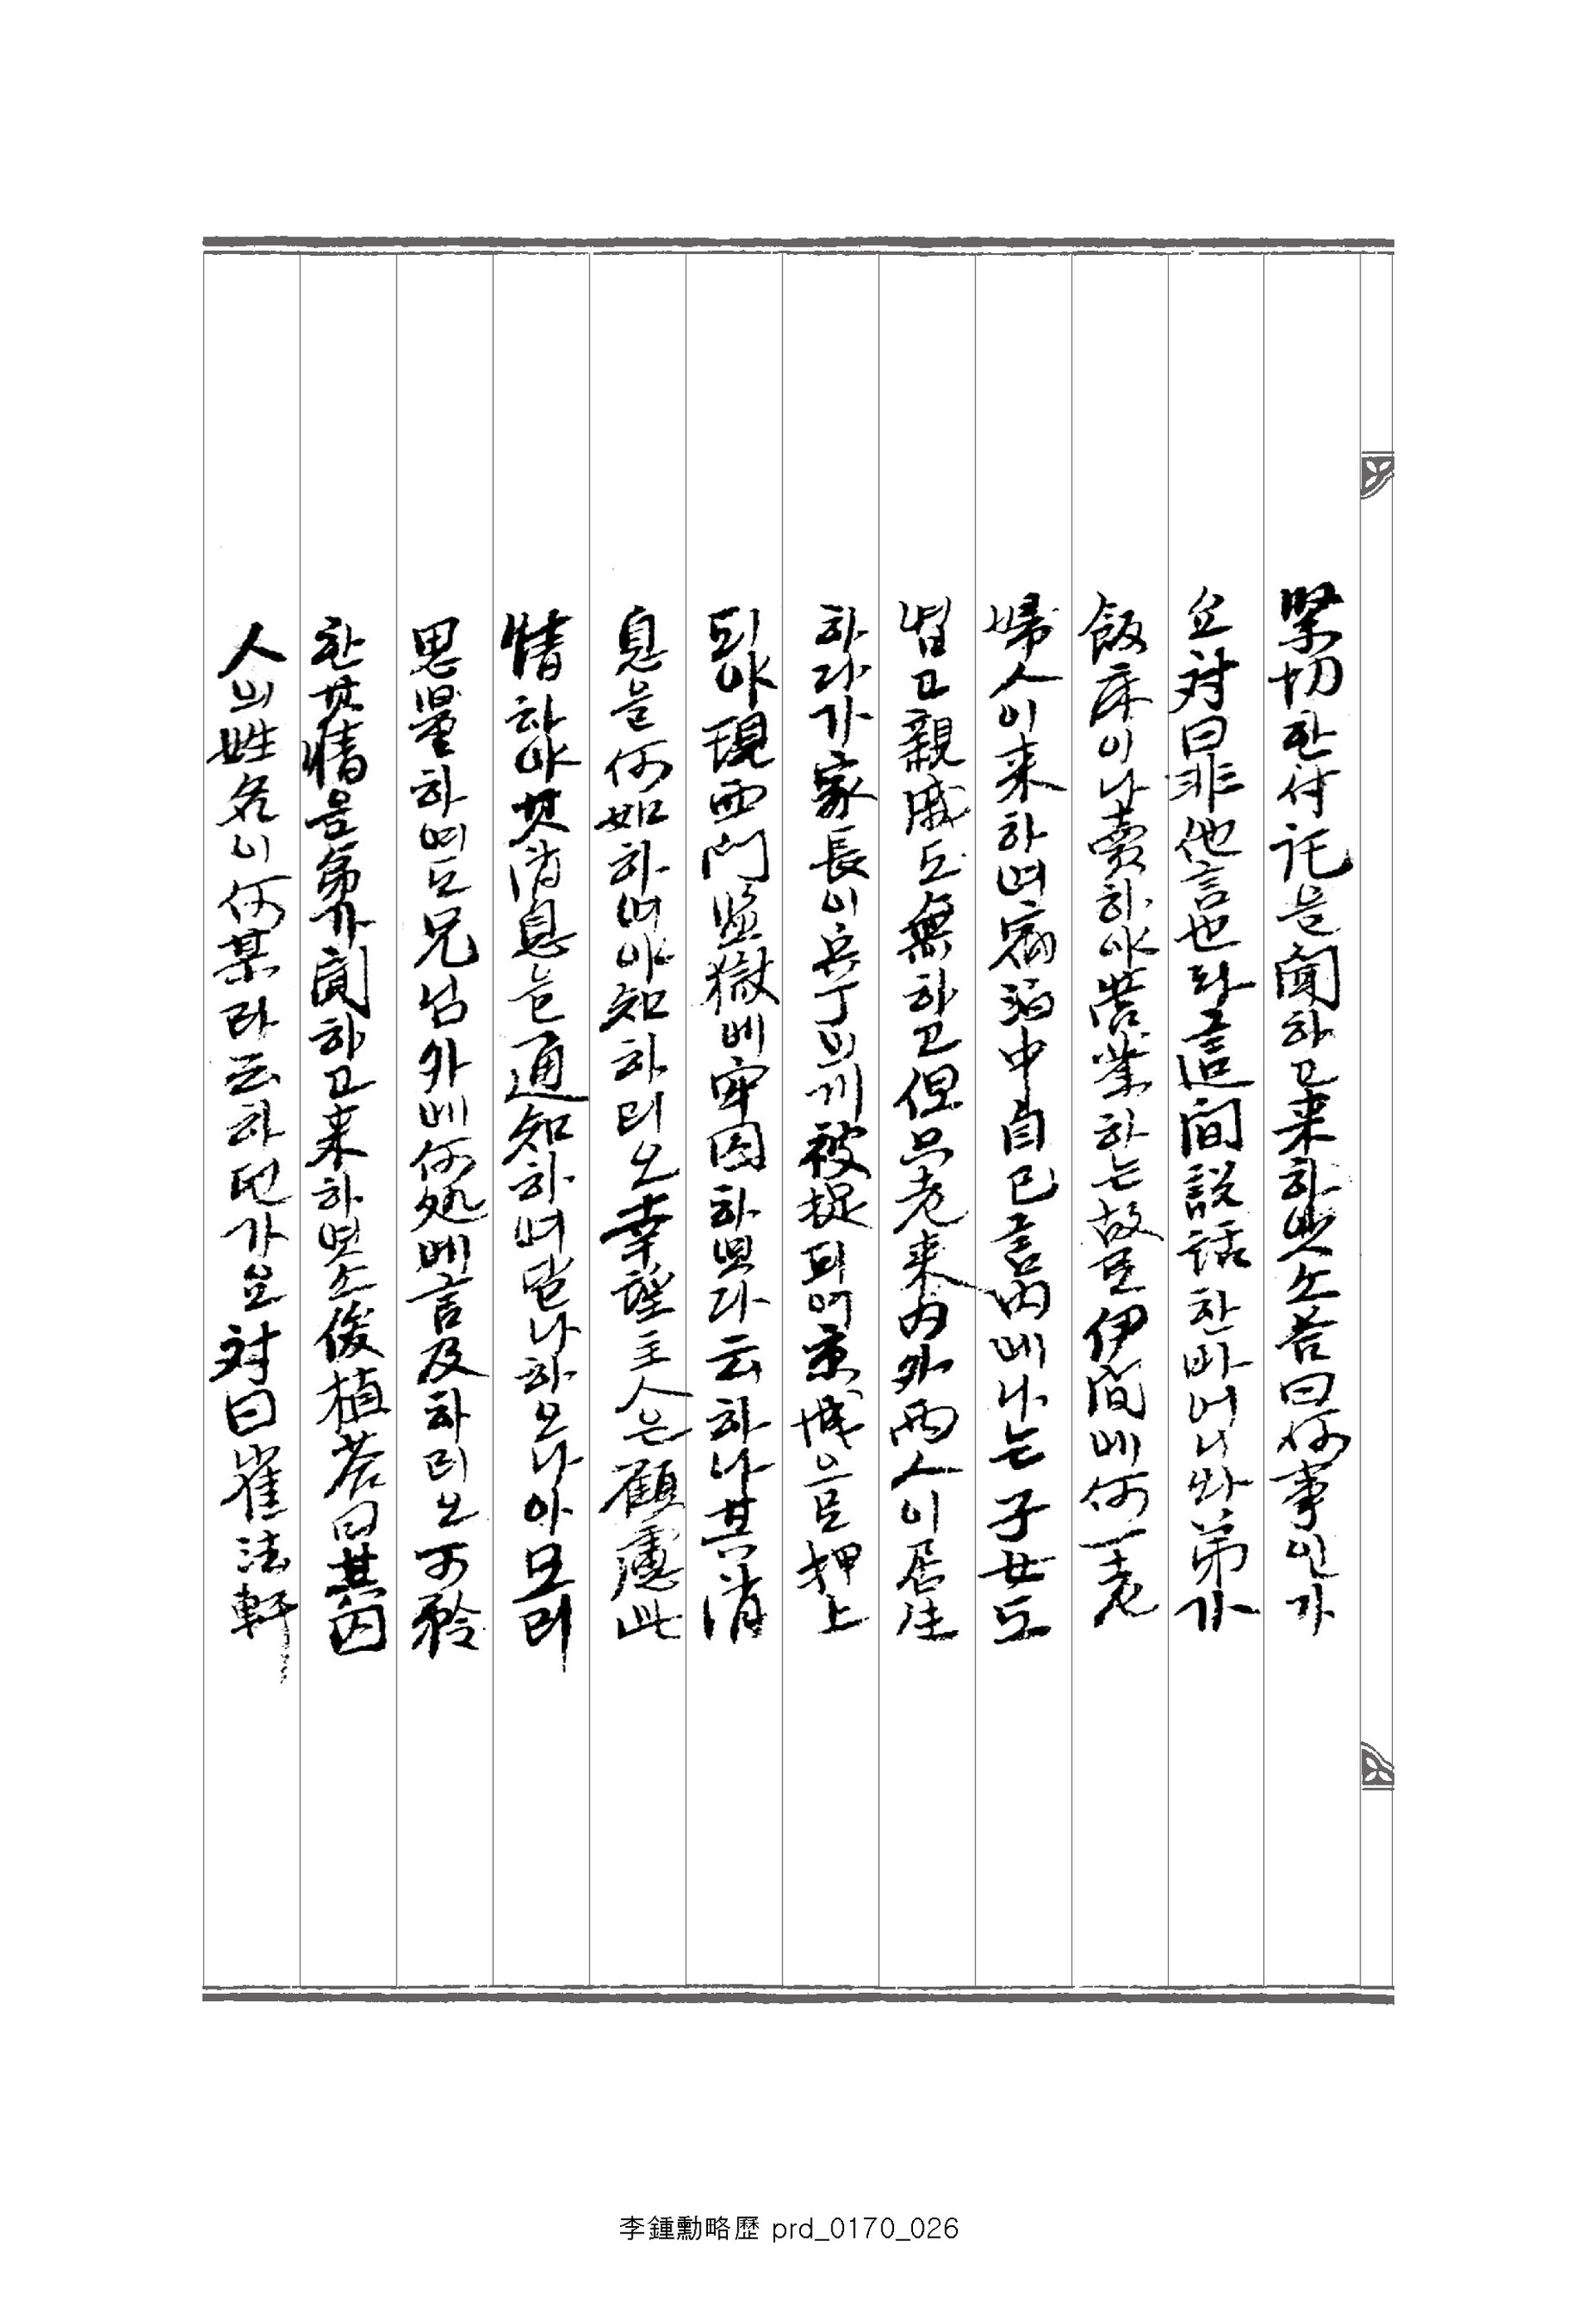 緊切한付託을聞하고来하얏소答曰何事인가
요対曰非他言也라這間説話한바어니와弟가
飯床이나賣하야営業하는故로伊間에何一老
婦人이来하여宿泊中自己言内에나는子女도
업고親戚도無하고但只老来内外両人이居生
하다가家長이兵丁의게被捉되여京城으로押上
되야現西門監獄에牢囚하엿다云하나其消
息을何如하여야知하리오幸望主人은顧慮此
情하야其消息을通知하여달나하오나아모리
思量하여도兄님外에何処에言及하리오可矜
한其情을弟가聞하고来하엿소俊植答曰其囚
人의姓名이何某라云하던가요対曰崔法軒
李鍾勳略歷 prd_0170_026